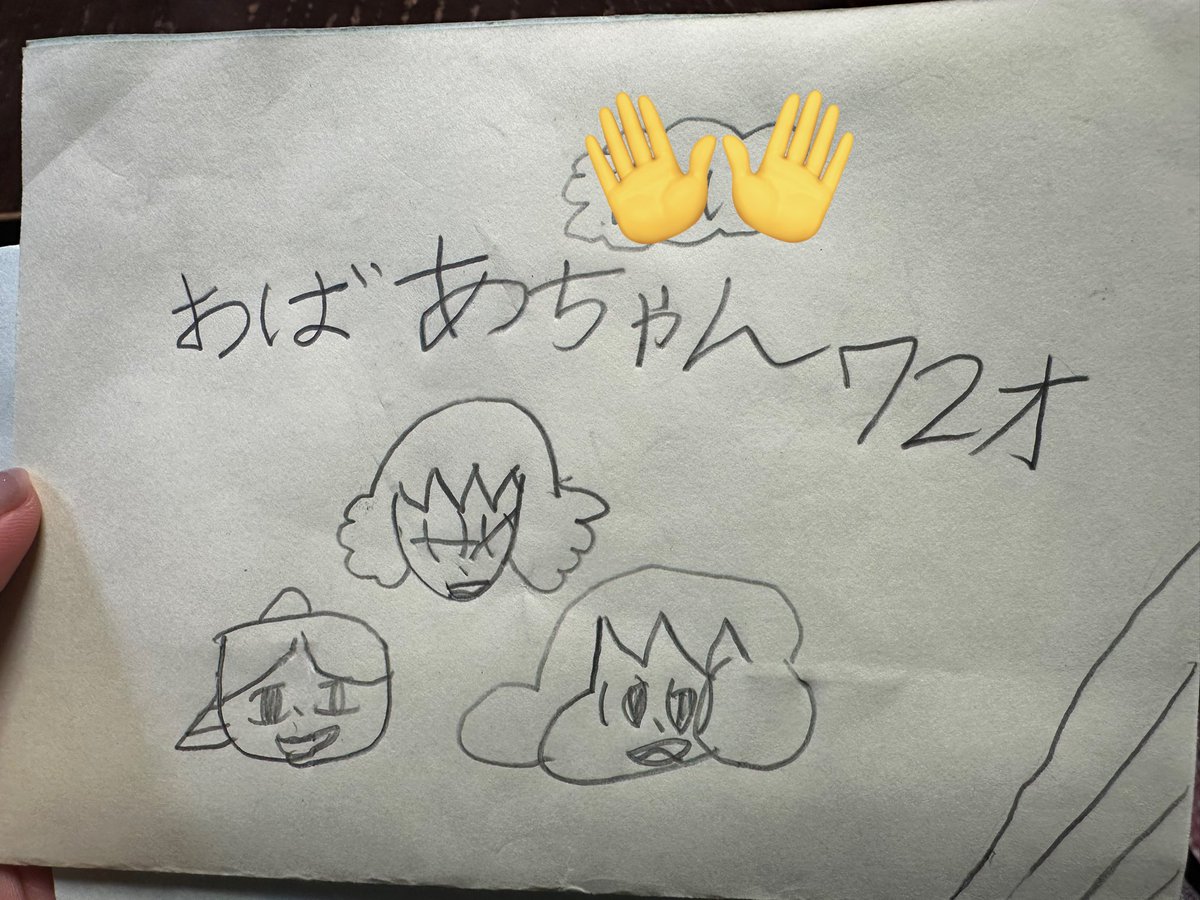 おばあちゃん72才